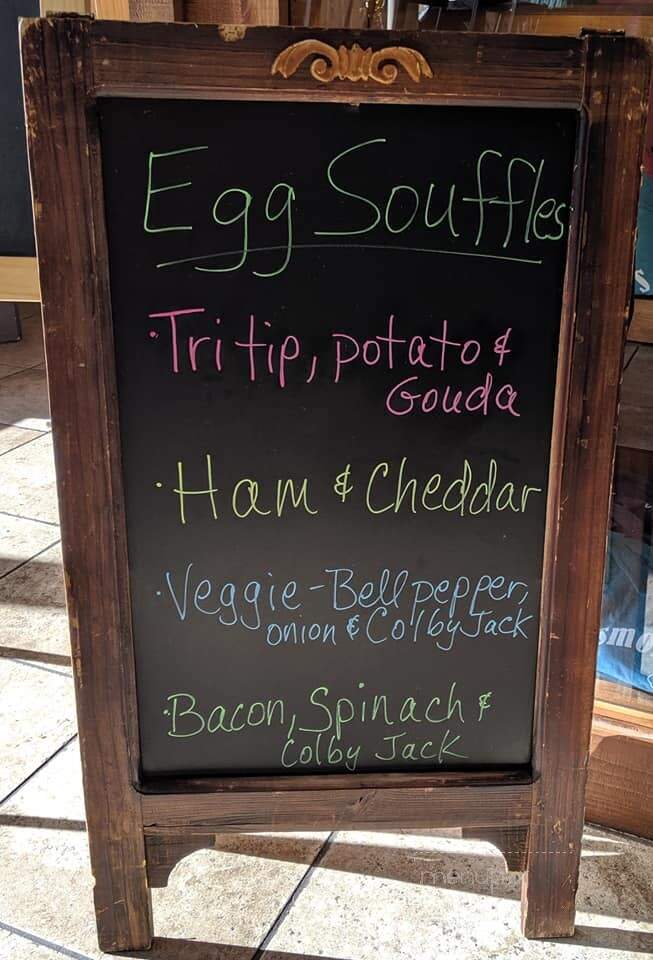 Egg Souffles
·Tri tip, potato &
Gouda
·Ham & Cheddar
·Veggie-Bell pepper,
onion & Colby Jack
·Bacon, Spinach &
Colby Jack
$
smo